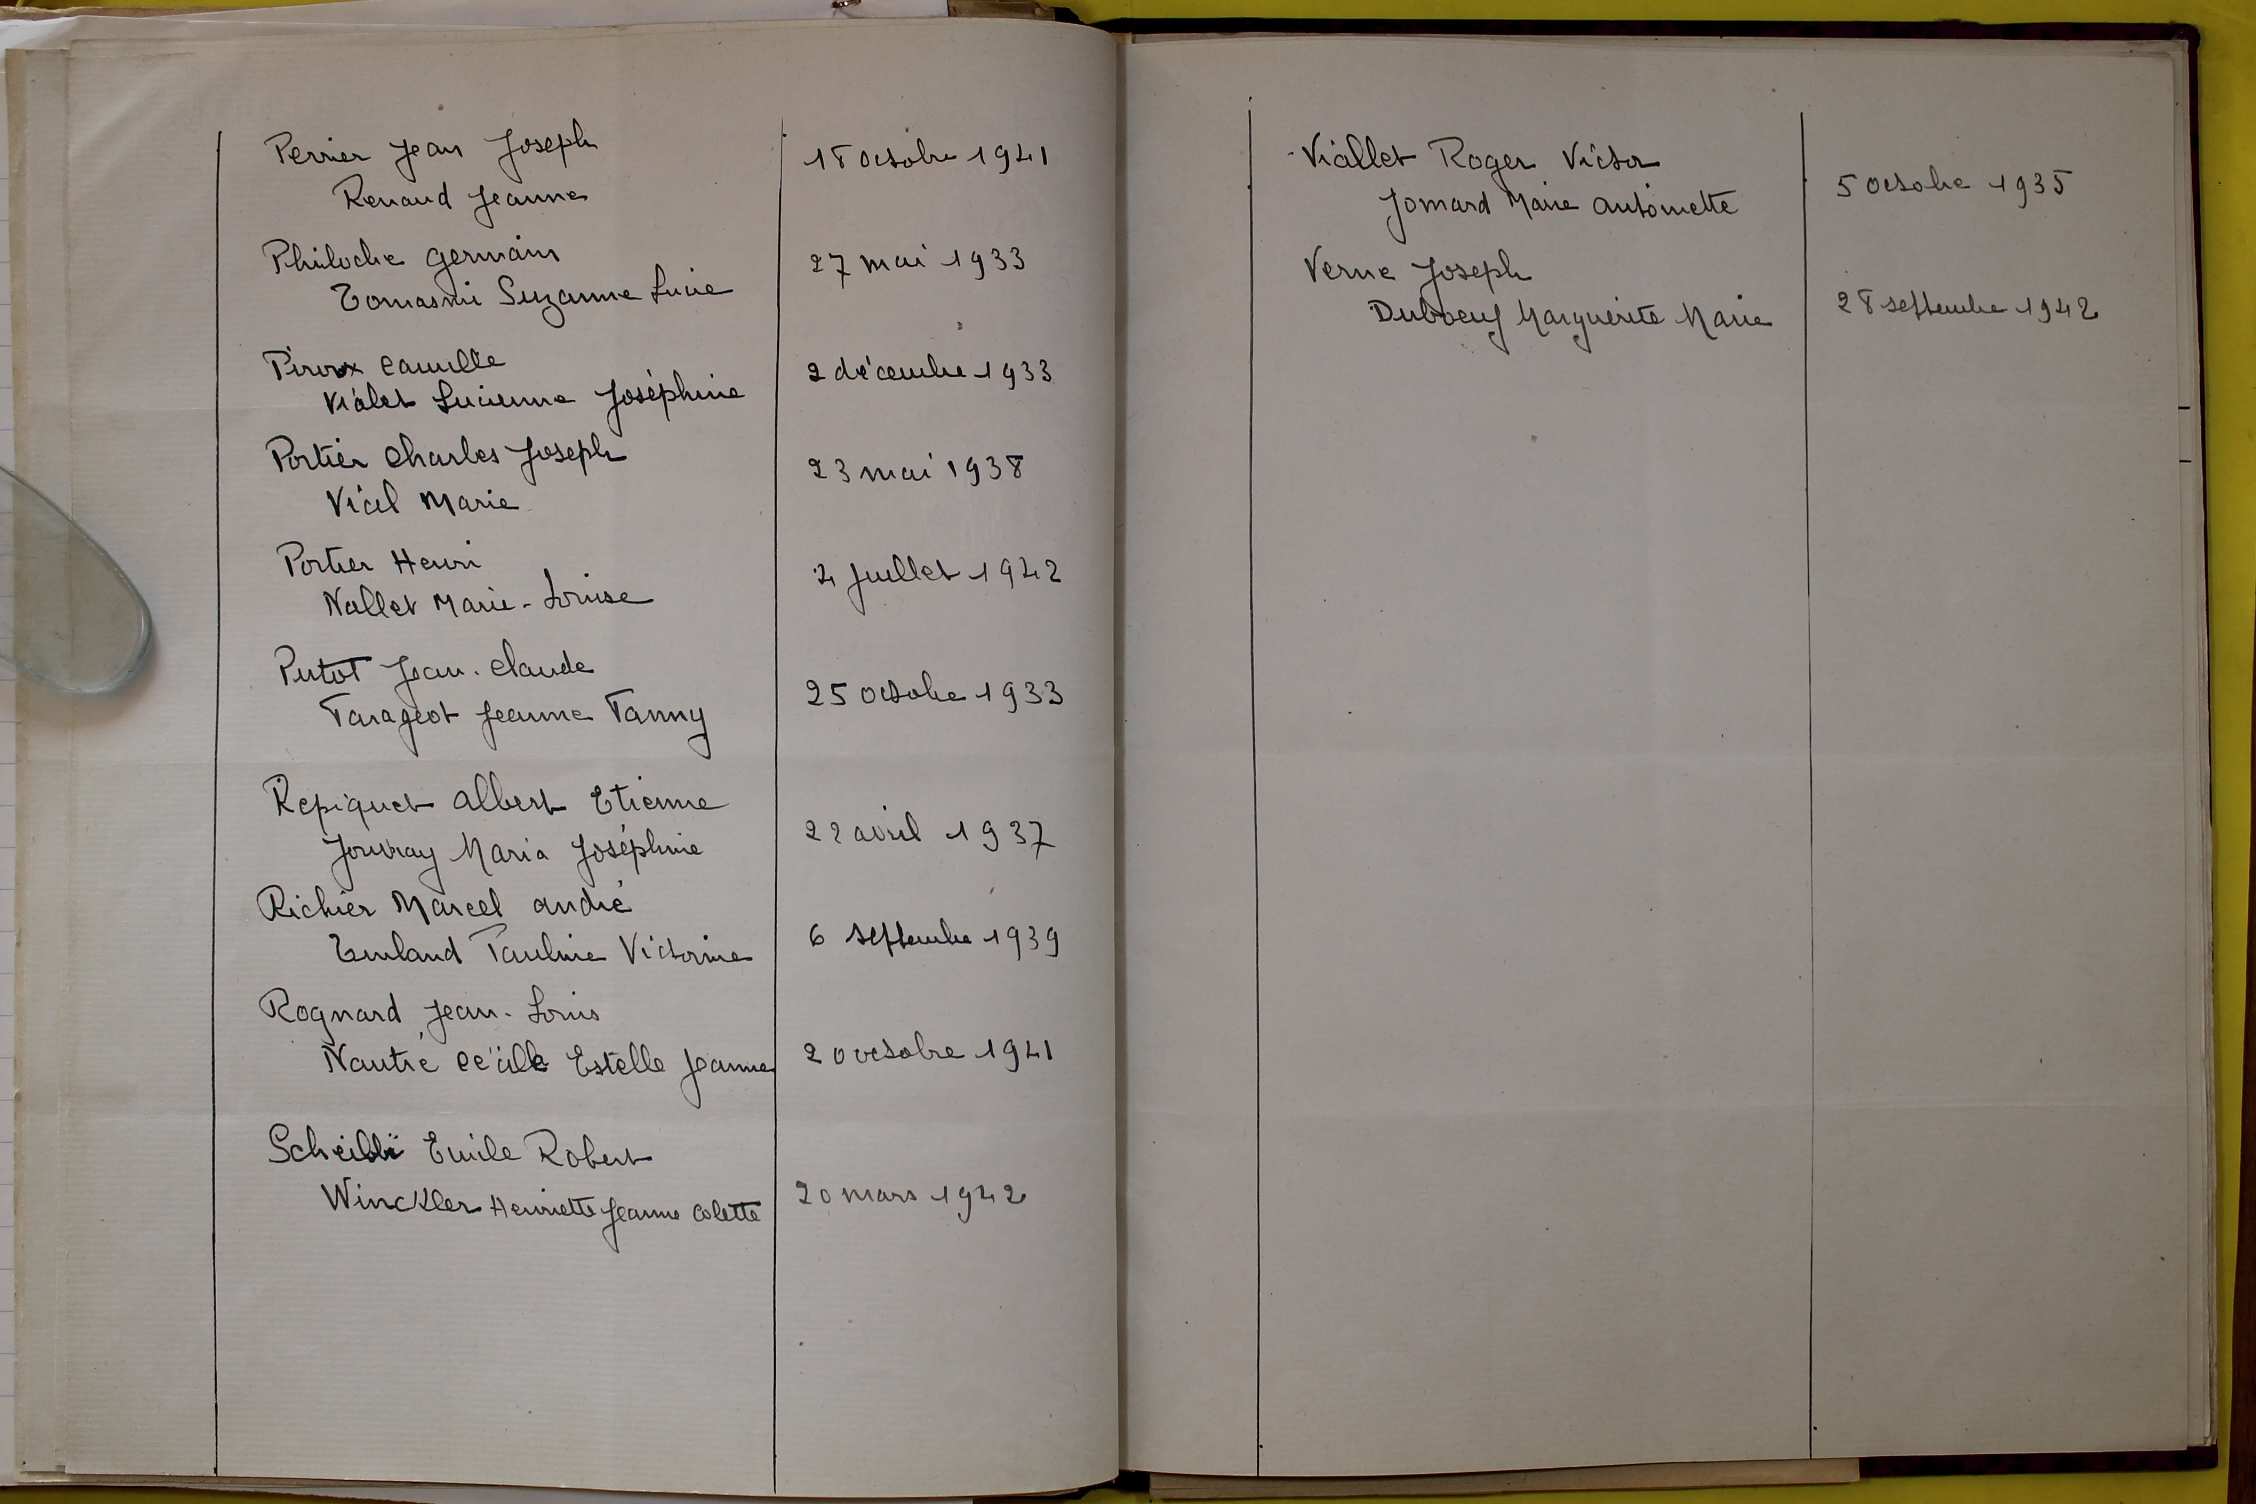 Perrier Jean Joseph
Renaud Jeanne
18 octobre 1941
Philoche Germain
Tomasini Suzanne Lucie
27 mai 1933
Piroux Camille
Vialet Lucienne Joséphine
2 décembre 1933
Portier Charles Joseph
Vial Marie
23 mai 1938
Portier Henri
Nallet Marie-Louise
4 juillet 1942
Putot Jean-Claude
Farageot Jeanne Fanny
25 octobre 1933
Repiquet Albert Etienne
Jouvray Maria Joséphine
22 avril 1937
Richier Marcel André
Pauline Victorine
6 septembre 1939
Rognard Jean-Louis
Nautré Cécile Estelle Jeanne
20 octobre 1941
Emile Robert
Winckler Henriette Jeanne Colette
20 mars 1942
Viallet Roger Victor
Jomard Marie Antoinette
5 octobre 1935
Verne Joseph
Duboeuf Marguerite Marie
28 septembre 1942